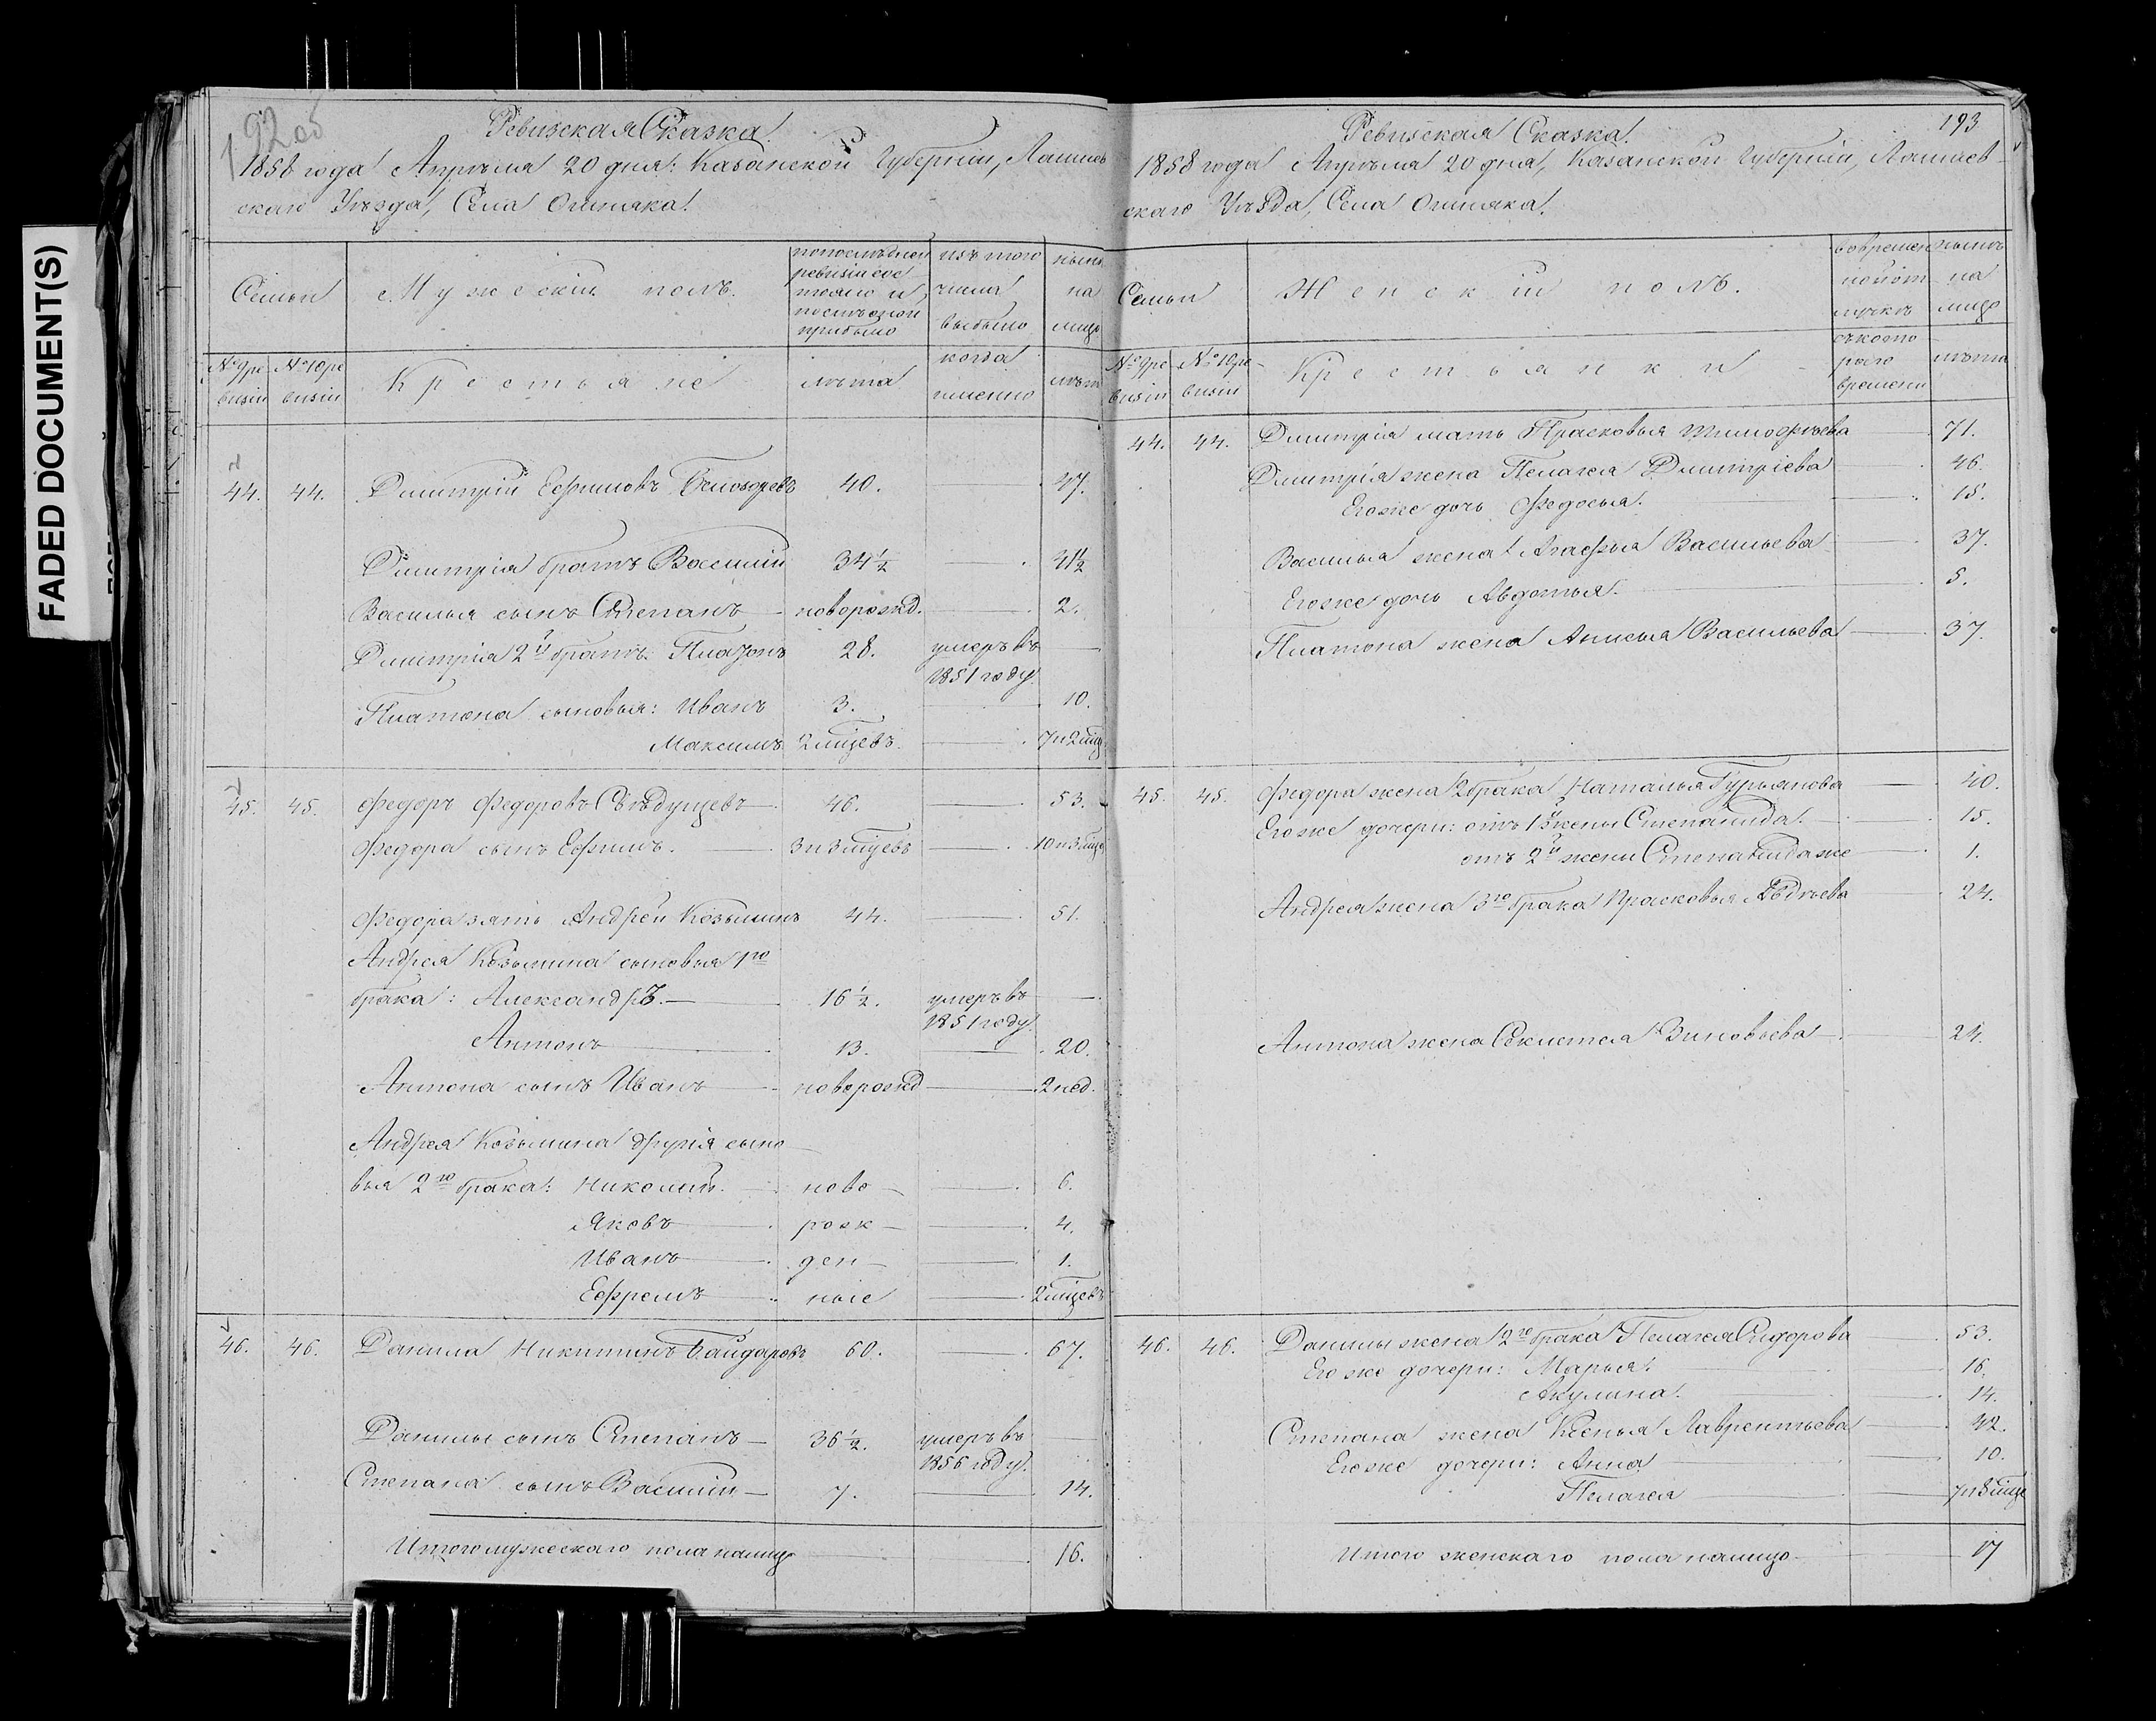 FADED DOCUMENT(S)
192об
Ревизская Сказка.
1858 года Апрѣля 20 дня. Казанской Губерніи, Лаишев
скаго Уѣзда, Села Ошняка.
Семьи
Мужескій полъ.
по послѣдней
ревизіи сос
тояло и
послѣ оной
прибыло
изъ того
числа
выбыло
нынѣ
на
лицо
№ 9 ре
визіи
№ 10 ре
визіи
Крестьяне
лѣта
когда
именно
лѣта
44. 44. Дмитрій Ефимовъ Бѣлозоревъ 40. 47.
Дмитрія братъ Василій 34½ 41½
Василья сынъ Степанъ новорожд. 2.
Дмитрія 2й братъ Платонъ 28. умеръ въ
1851 году.
Платона сыновья: Иванъ 3. 10.
Максимъ 2 мѣцевъ. 7 и 2 мѣц
45. 45. Федоръ Федоровъ 46. 53.
Федора сынъ Ефимъ. 3 и 3 мѣцевъ 10 и 3 мѣце
Федора зять Андрей Козьминъ 44. 51.
Андрея Козьмина сыновья 1го
брака: Александръ. 16½. умеръ въ
1851 году.
Антонъ 13. 20.
Антона сынъ Иванъ новорожд 2 нед.
Андрея Козьмина другія сыно
вья 2го брака: Николай. ново 6.
Яковъ рож 4.
Иванъ ден 1.
Ефремъ ные 2 мѣцевъ
46. 46. Данила Никитинъ Байдаровъ 60. 67.
Данилы сынъ Степанъ 36½. умеръ въ
1856 году.
Степана сынъ Василій 7. 14.
Итого мужескаго пола налицо 16.
193
Ревизская Сказка.
1858 года Апрѣля 20 дня, Казанской Губерніи, Лаишев
скаго Уѣзда, Села Ошняка.
Семьи
Женскій полъ.
во времен
ной от
лучкѣ
нынѣ
на
лицо
№ 9 ре
визіи
№ 10 ре
визіи
Крестьянки
съ кото
раго
времени
лѣта
44. 44. Дмитрія мать Прасковья Тимофѣева 71.
Дмитрія жена Пелагея Дмитріева 46.
Его же дочь Федосья. 15.
Василья жена Агафья Васильева 37.
Его же дочь Авдотья. 5.
Платона жена Анисья Васильева 37.
45. 45. Федора жена 2 брака Наталья Гурьянова 40.
Его же дочери: отъ 1й жены Степанида. 15.
отъ 2й жены Степанида же 1.
Андрея жена 3го брака Прасковья 24.
Антона жена Зиновьева 24.
46. 46. Данилы жена 2го брака Пелагея Сидорова 53.
Его же дочери: Марья. 16.
Акулина. 14.
Степана жена Ксенья Лаврентьева 42.
Его же дочери: Анна 10.
Пелагея 7 и 8 мѣце
Итого женскаго пола налицо 17